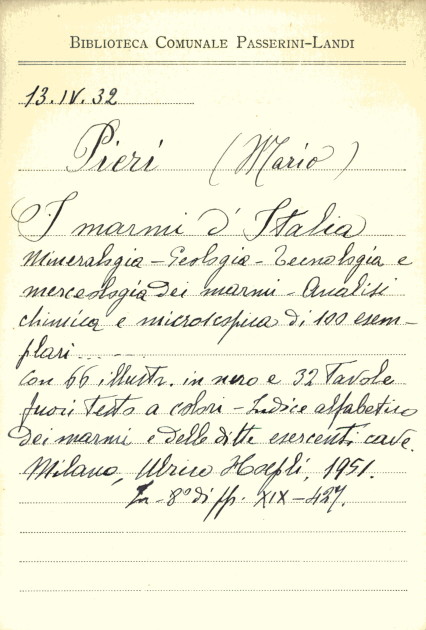 BIBLIOTECA COMUNALE PASSERINI-LANDI
13.IV.32
Pieri (Mario)
I marmi d'Italia
Mineralogia - Geologia - Tecnologia e
merceologia dei marmi - Analisi
chimica e microscopica di 100 esem-
plari
con 66 illustr. in nero e 32 Tavole
fuori testo a colori - Indice alfabetico
dei marmi e delle ditte esercenti cave.
Milano, Ulrico Hoepli, 1951.
In-8° di pp. XIX-427.